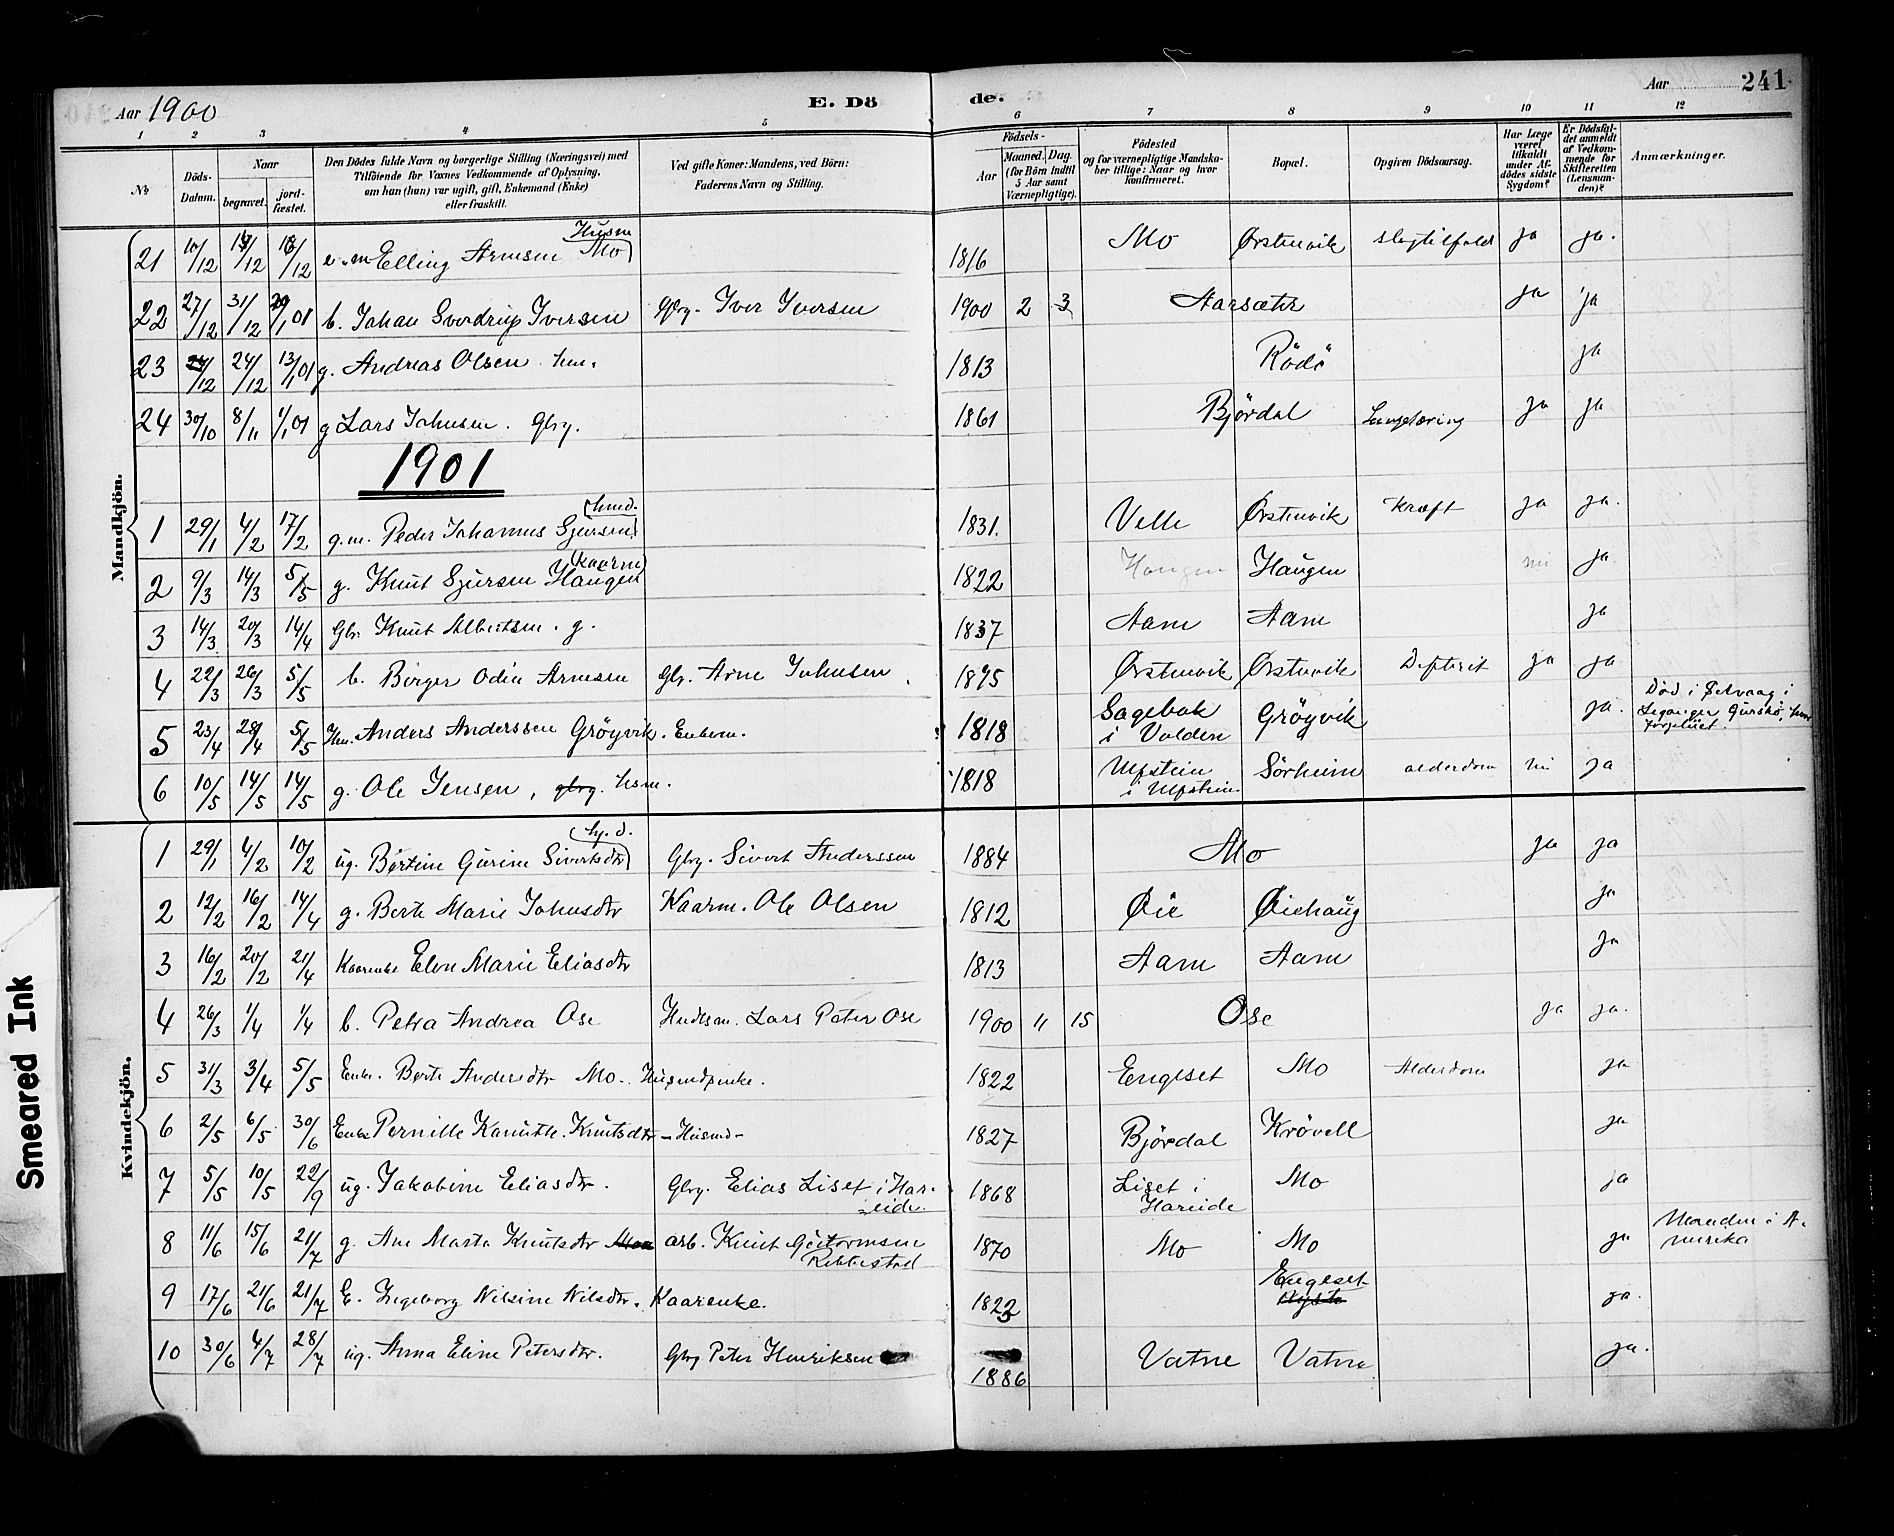 Aar 1900
E. Dö
de.
Aar 241.
1 2 3 4 5 6 7 8 9 10 11 12
No
Döds-Datum.
Naar
begravet.
jordfæstet.
Den Dödes fulde Navn og borgerlige Stilling (Næringsvei) med
Tilföiende for Voxnes Vedkommende af Oplysning,
om han (hun) var ugift, gift, Enkemand (Enke)
eller fraskilt.
Ved gifte Koner: Mandens, ved Börn:
Faderens Navn og Stilling.
Födsels-
Aar
Maaned. Dag.
(for Börn indtil
5 Aar samt
Værnepligtige).
Födested
og for værnepligtige Mandska-
ber tillige: Naar og hvor
konfirmeret.
Bopæl.
Opgiven Dödsaarsag.
Har Læge
været
tilkaldt
under Af-
dödes sidste
Sygdom?
Er Dödsfal-
det anmeldt
af Vedkom-
mende for
Skifteretten
(Lensman-
den)?
Anmærkninger.
Mandkjön.
21 10/12 /12 /12 e.m Elling Arnesen Mo Husm 1816 Mo Ørstenvik slagtilfæld ja ja.
22 27/12 31/12 /1 01 b. Johan Sverdrup Iversen Gbrg. Iver Iversen 1900 2 3 Aarsæter ja ja
23 /12 24/12 13/1 01 g. Andreas Olsen hm. 1813 Rödö ja
24 30/10 8/11 1/1 01 g Lars Johnsen. Gbrg. 1861 Björdal Lungetæring ja ja
1901
1 29/1 4/2 17/2 g.m. Peder Johannes Sjursen hmd. 1831. Velle Ørstenvik Kræft ja ja.
2 9/3 14/3 5/5 g. Knut Sjursen Haugen Kaarm 1822 Haugen Haugen nei ja.
3 14/3 20/3 14/4 Gbr. Knut Albertsen. g. 1837 Aam Aam ja
4 22/3 26/3 5/5 b. Birger Odin Arnesen Gbr. Arne Johnsen 1895 Ørstenvik Ørstenvik Difterit ja ja
5 23/4 28/4 5/5 Hm. Anders Anderssen Gröyvik. Enkem. 1818 Sagebak i Volden Gröyvik ja. Död i Ørvaag i
Leganger Gurskö, hvor
jorfæstet.
6 10/5 14/5 14/5 g. Ole Jensen, gbrg. hsm. 1818 Ulfstein i Ulfstein Sörheim alderdom nei ja
Kvindekjön.
1 29/1 4/2 10/2 ug. Bertine Gurine Sivertsdtr Gbrg. Sivert Anderssen 1884 Mo ja ja
2 12/2 16/2 14/4 g. Berte Marie Johnsdtr Kaarm. Ole Olsen 1812 Øie Øiehaug ja
3 16/2 20/2 21/4 Kaarenke Elen Marie Eliasdtr 1813 Aam Aam ja
4 26/3 1/4 1/4 b. Petra Andrea Ose Lars Peter Ose 1900 11 15 Ose ja ja.
5 31/3 3/4 5/5 Enke. Berte Andersdtr Mo. Husmdsenke. 1822 Engeset Mo Alderdom ja
6 2/5 6/5 30/6 Enke Pernille Kanuthe Knutsdtr - Husmd - 1827 Björdal Krövell ja
7 5/5 10/5 22/9 ug. Jakobine Eliasdtr. Gbrg. Elias Liset i Har-
eide. 1868 Liset i Hareide Mo ja
8 11/6 15/6 21/7 g. Ane Marta Knutsdtr arb. Knut Guttormsen
Ribbestad 1870 Mo Mo ja Manden i A-
merika
9 17/6 21/6 21/7 E. Ingeborg Nilsine Nilsdtr. Kaarenke. 1823 Engeset ja.
10 30/6 4/7 28/7 ug. Anna Eline Petersdtr. Gbrg Peter Henriksen 1886 Vatne Vatne ja.
Smeared Ink